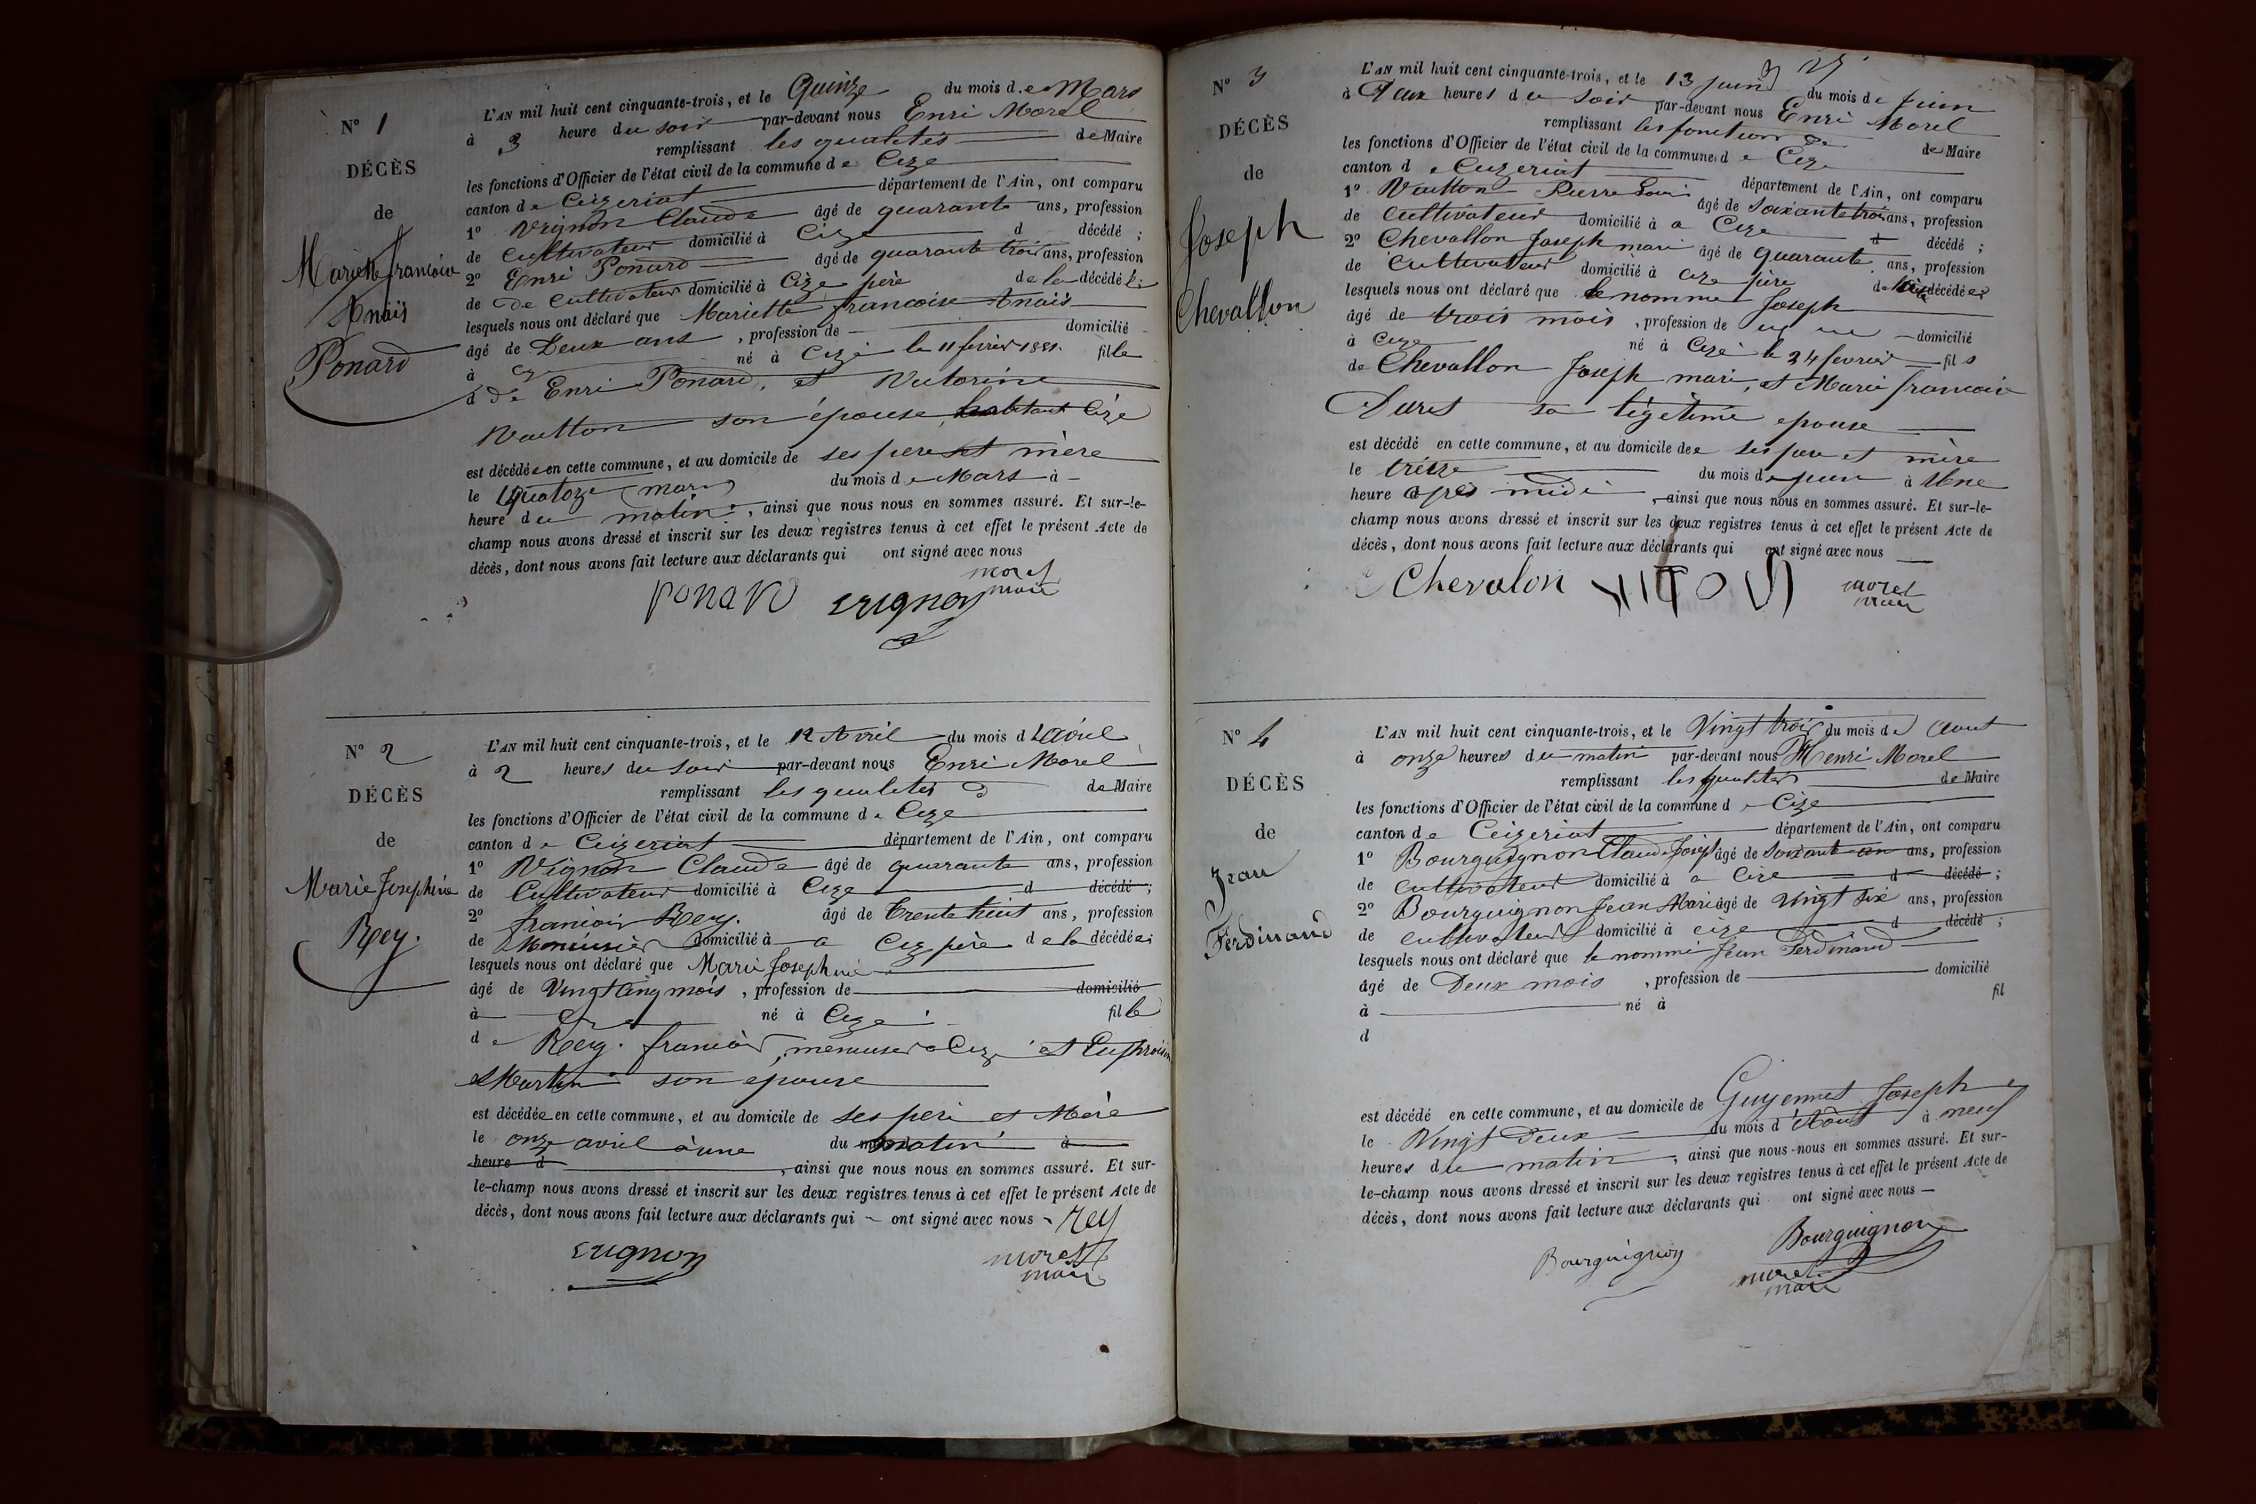 N° 1
DÉCÈS
de
Mariette françoise
Anaïs
Ponard
L'AN mil huit cent cinquante-trois, et le Quinze du mois de Mars
à 3 heure du soir par-devant nous Enri Morel
remplissant les qualités de Maire
les fonctions d'Officier de l'état civil de la commune de Cize
canton de Ceizeriat département de l'Ain, ont comparu
1° Vignon Claude âgé de quarante ans, profession
de cultivateur domicilié à Cize d décédé ;
2° Enri Ponard âgé de quarante trois ans, profession
de De cultivateur domicilié à Cize père de la décédé
lesquels nous ont déclaré que Mariette françoise Anais
âgé de Deux ans , profession de domicilié
à Cize né à Cize le 11 février 1851. fille
d De Enri Ponard, et Victorine
Vuitton son épouse, habitant Cize
est décédée en cette commune, et au domicile de ses pere et mère
le quatoze mars du mois de Mars à
heure du matin, ainsi que nous nous en sommes assuré. Et sur-le-
champ nous avons dressé et inscrit sur les deux registres tenus à cet effet le présent Acte de
décès, dont nous avons fait lecture aux déclarants qui ont signé avec nous
ponard vignon morel
maire
N° 2
DÉCÈS
de
Marie Josephine
Rey.
L'AN mil huit cent cinquante-trois, et le 12 Avril du mois d'avril
à 2 heures du soir par-devant nous Enri Morel
remplissant les qualités de Maire
les fonctions d'Officier de l'état civil de la commune de Cize
canton de Ceizeriat département de l'Ain, ont comparu
1° Vignon Claude âgé de quarante ans, profession
de Cultivateur domicilié à Cize d décédé ;
2° françois Rey. âgé de Trente huit ans, profession
de Menuisier domicilié à a Cize père de la décédée
lesquels nous ont déclaré que Marie Josephine
âgé de Vingt cinq mois , profession de domicilié
à né à Cize fille
de Rey. françois, menuisier a Cize et Euphroisine
Martin son epouse
est décédée en cette commune, et au domicile de ses pere et Mère
le onze avril à une du matin à
heure d , ainsi que nous nous en sommes assuré. Et sur-
le-champ nous avons dressé et inscrit sur les deux registres tenus à cet effet le présent Acte de
décès, dont nous avons fait lecture aux déclarants qui ont signé avec nous Rey
vignon morel
maire
N° 3
DÉCÈS
de
Joseph
Chevallon
L'AN mil huit cent cinquante-trois, et le 13 Juin du mois de Juin
à Deux heures du soir par-devant nous Enri Morel
remplissant les fonctions de de Maire
les fonctions d'Officier de l'état civil de la commune de Cize
canton de Ceizeriat département de l'Ain, ont comparu
1° Vuitton Pierre Louis âgé de soixante trois ans, profession
de cultivateur domicilié à a Cize d décédé ;
2° Chevallon Joseph marie âgé de quarante ans, profession
de cultivateur domicilié à Cize père de décédé
lesquels nous ont déclaré que le nomme Joseph
âgé de trois mois , profession de domicilié
à Cize né à Cize le 24 fevrier fils
de Chevallon Joseph marie, et Marie francoise
sa légétime epouse
est décédé en cette commune, et au domicile de ses pere et mère
le tréize du mois de juin à Une
heure apres midi , ainsi que nous nous en sommes assuré. Et sur-le-
champ nous avons dressé et inscrit sur les deux registres tenus à cet effet le présent Acte de
décès, dont nous avons fait lecture aux déclarants qui ont signé avec nous
Chevalon morel
maire
N° 4
DÉCÈS
de
Jean
Ferdinand
L'AN mil huit cent cinquante-trois, et le Vingt trois du mois de Aout
à onze heures du matin par-devant nous Henri Morel
remplissant les qualités de Maire
les fonctions d'Officier de l'état civil de la commune de Cize
canton de Ceizeriat département de l'Ain, ont comparu
1° Bourguignon Claude Joseph âgé de Soixante un ans, profession
de cultivateur domicilié à a Cize d décédé ;
2° Bourguignon Jean Marie âgé de vingt six ans, profession
de cultivateur domicilié à cize d décédé ;
lesquels nous ont déclaré que le nommé Jean Ferdinand
âgé de Deux mois , profession de domicilié
à né à fil
d
est décédé en cette commune, et au domicile de Guyennet Joseph
le Vingt Deux du mois d'Aout à neuf
heures du matin , ainsi que nous-nous en sommes assuré. Et sur-
le-champ nous avons dressé et inscrit sur les deux registres tenus à cet effet le présent Acte de
décès, dont nous avons fait lecture aux déclarants qui ont signé avec nous
Bourguignon Bourguignon
morel
maire